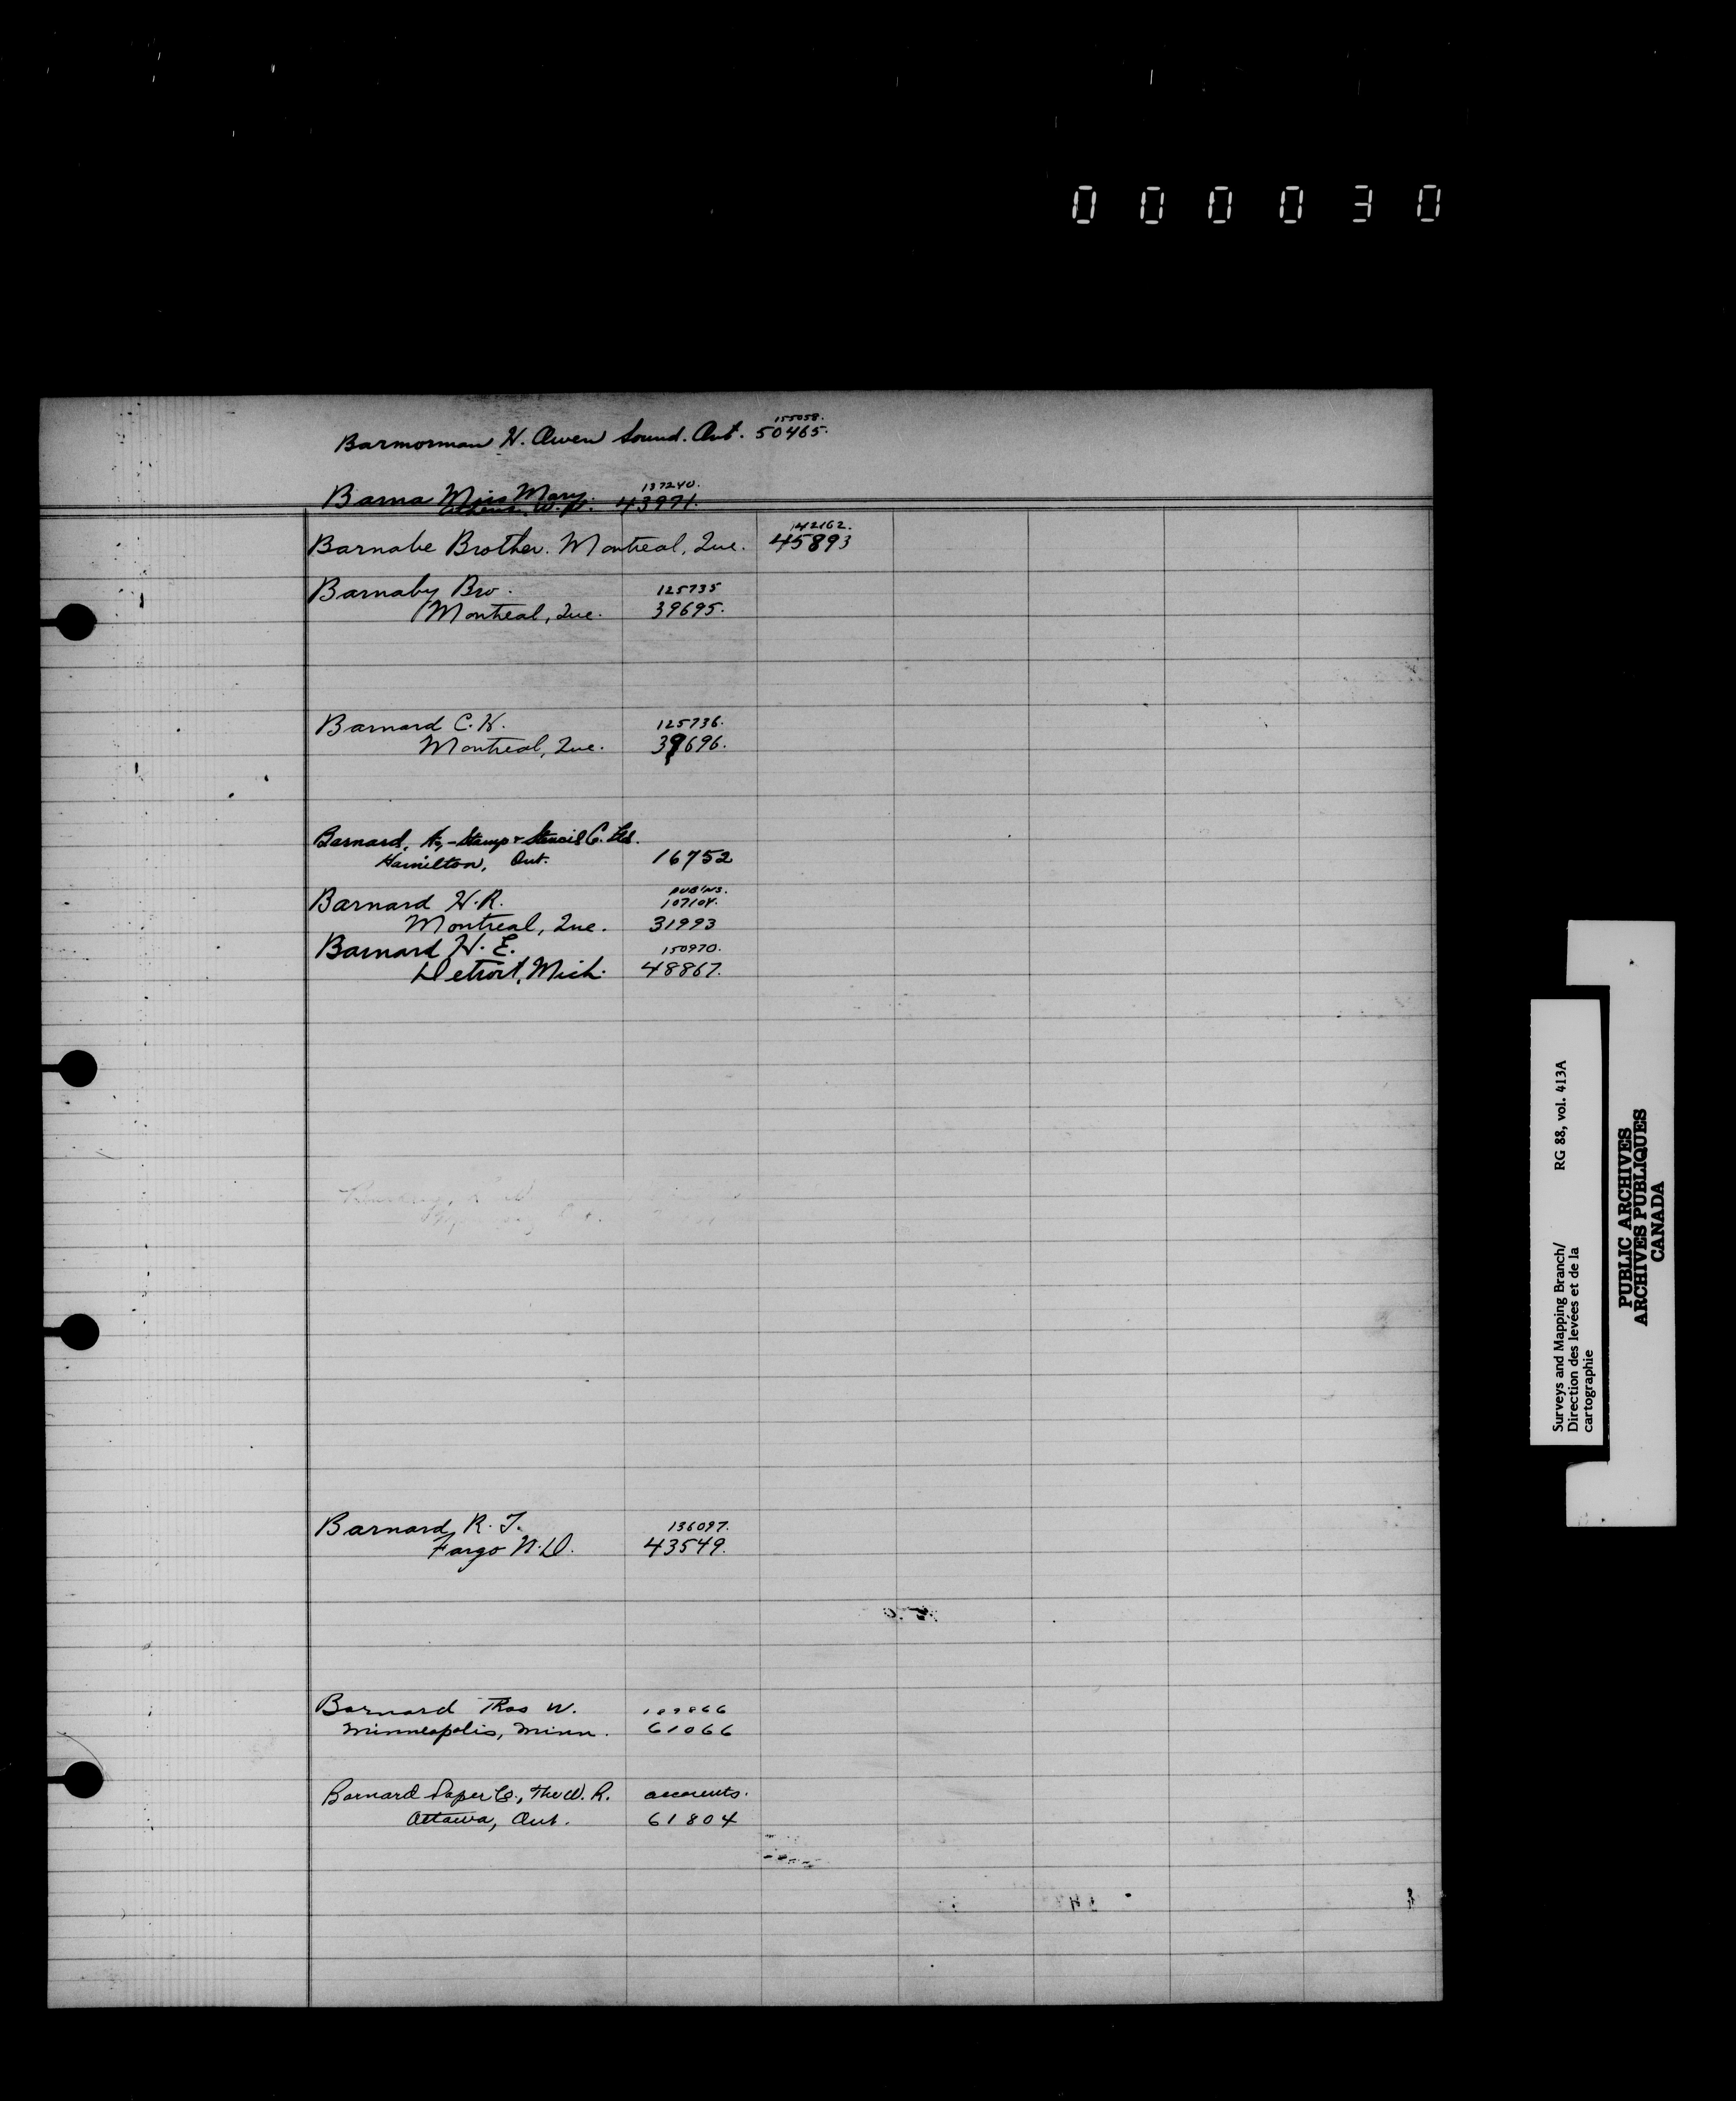 000030
155058.
Barmorman H. Owen Sound. Ont. 50465.
137240.
Barna Miss Mary. 43971.
142162.
Barnabe Brother. Montreal, Que. 45893
Barnaby Bro. 125735
Montreal, Que. 39695.
Barnard C. H. 125736.
Montreal, Que. 39696.
Barnard, A, - Stamp & Stencil C. Ltd.
Hamilton, Ont. 16752
PUB'NS.
Barnard H. R. 107104.
Montreal, Que. 31993
Barnard H. E. 150970.
Detroit, Mich. 48867.
Barnard, R. T. 136097.
Fargo N.D. 43549.
Barnard Thos W.
Minneapolis, Minn. 61066
Barnard Paper Co., The W. R. accounts.
Ottawa, Ont. 61804
Surveys and Mapping Branch/ RG 88, vol. 413A
Direction des levées et de la
cartographie
PUBLIC ARCHIVES
ARCHIVES PUBLIQUES
CANADA